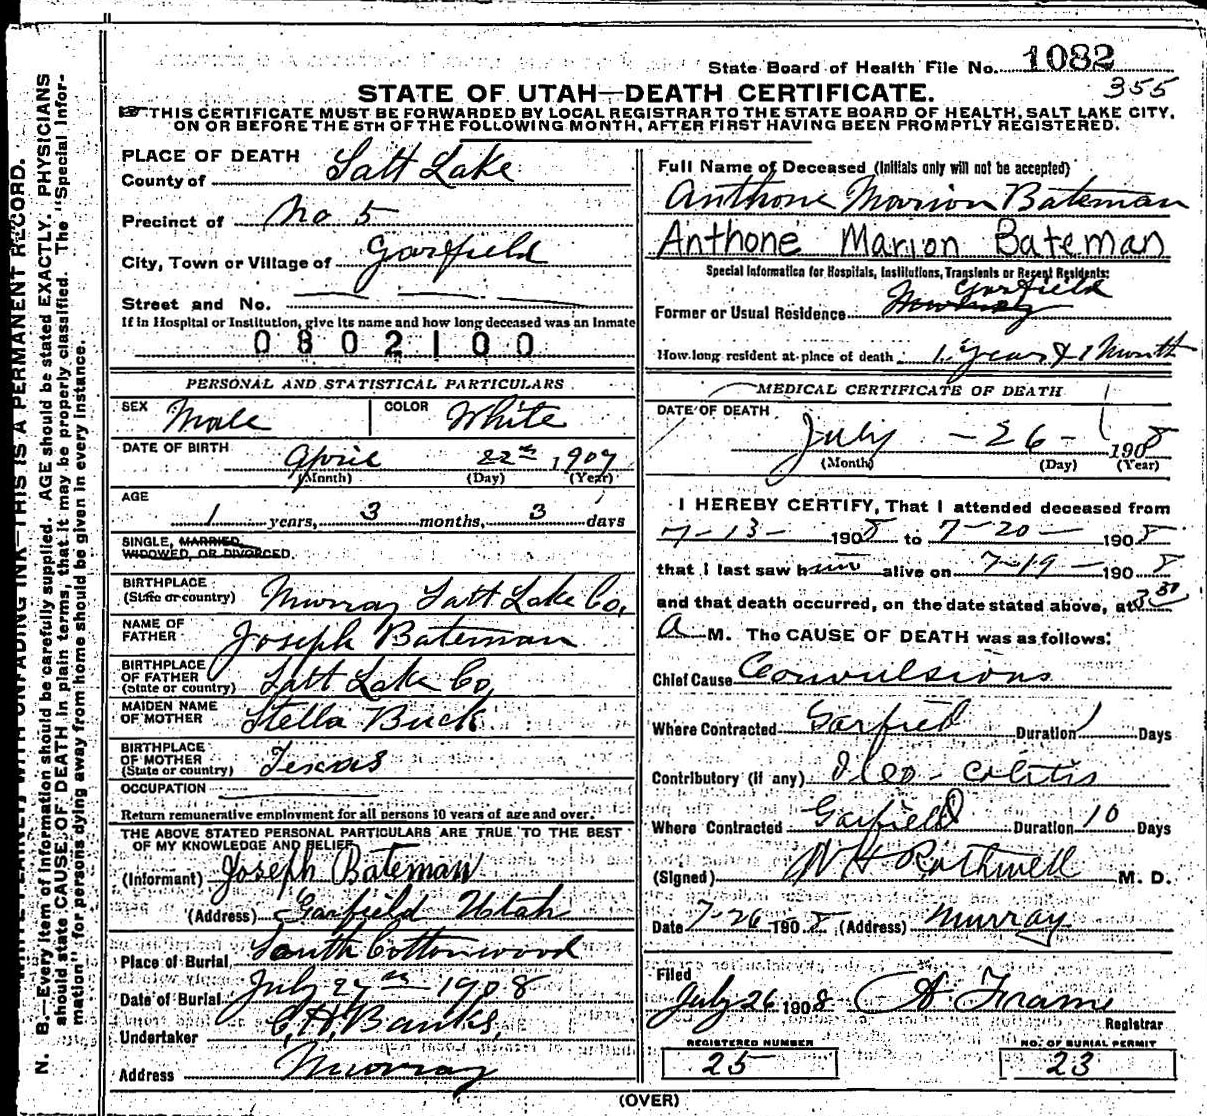 State Board of Health File No. 1082
355
STATE OF UTAH—DEATH CERTIFICATE.
THIS CERTIFICATE MUST BE FORWARDED BY LOCAL REGISTRAR TO THE STATE BOARD OF HEALTH, SALT LAKE CITY,
ON OR BEFORE THE 5TH OF THE FOLLOWING MONTH, AFTER FIRST HAVING BEEN PROMPTLY REGISTERED.
PLACE OF DEATH
County of Salt Lake
Precinct of No 5
City, Town or Village of Garfield
Street and No.
If in Hospital or Institution, give its name and how long deceased was an Inmate
0802100
PERSONAL AND STATISTICAL PARTICULARS
SEX Male COLOR White
DATE OF BIRTH April 22nd, 1907
(Month) (Day) (Year)
AGE
1 years, 3 months, 3 days
SINGLE, MARRIED,
WIDOWED, OR DIVORCED.
BIRTHPLACE
(State or country) Murray Salt Lake Co,
NAME OF
FATHER Joseph Bateman
BIRTHPLACE
OF FATHER
(State or country) Salt Lake Co,
MAIDEN NAME
OF MOTHER Stella Buck
BIRTHPLACE
OF MOTHER
(State or country) Texas
OCCUPATION
Return remunerative employment for all persons 10 years of age and over.
THE ABOVE STATED PERSONAL PARTICULARS ARE TRUE TO THE BEST
OF MY KNOWLEDGE AND BELIEF
(Informant) Joseph Bateman
(Address) Garfield Utah
Place of Burial South Cottonwood
Date of Burial July 27th 1908
Undertaker C. H. Banks,
Address Murray
Full Name of Deceased (Initials only will not be accepted)
Anthone Marion Bateman
Anthone Marion Bateman
Special Information for Hospitals, Institutions, Transients or Recent Residents:
Garfield
Former or Usual Residence
How long resident at place of death 1 Year & 1 Month
MEDICAL CERTIFICATE OF DEATH
DATE OF DEATH
July - 26 - 1908
(Month) (Day) (Year)
I HEREBY CERTIFY, That I attended deceased from
7-13- 1908 to 7-20- 1908
that I last saw him alive on 7-19- 1908
and that death occurred, on the date stated above, at 3 30
A M. The CAUSE OF DEATH was as follows:
Chief Cause Convulsions
Where Contracted Garfield Duration 1 Days
Contributory (if any) Ileo-colitis
Where Contracted Garfield Duration 10 Days
(Signed) W H Rothwell M. D.
Date 7-26 1908 (Address) Murray
Filed
July 26 1908 A Frame
Registrar
REGISTERED NUMBER
25
NO. OF BURIAL PERMIT
23
(OVER)
N. B.—Every item of information should be carefully supplied. AGE should be stated EXACTLY. PHYSICIANS
should state CAUSE OF DEATH in plain terms, that it may be properly classified. The "Special Infor-
mation" for persons dying away from home should be given in every instance.
WITH UNFADING INK—THIS IS A PERMANENT RECORD.